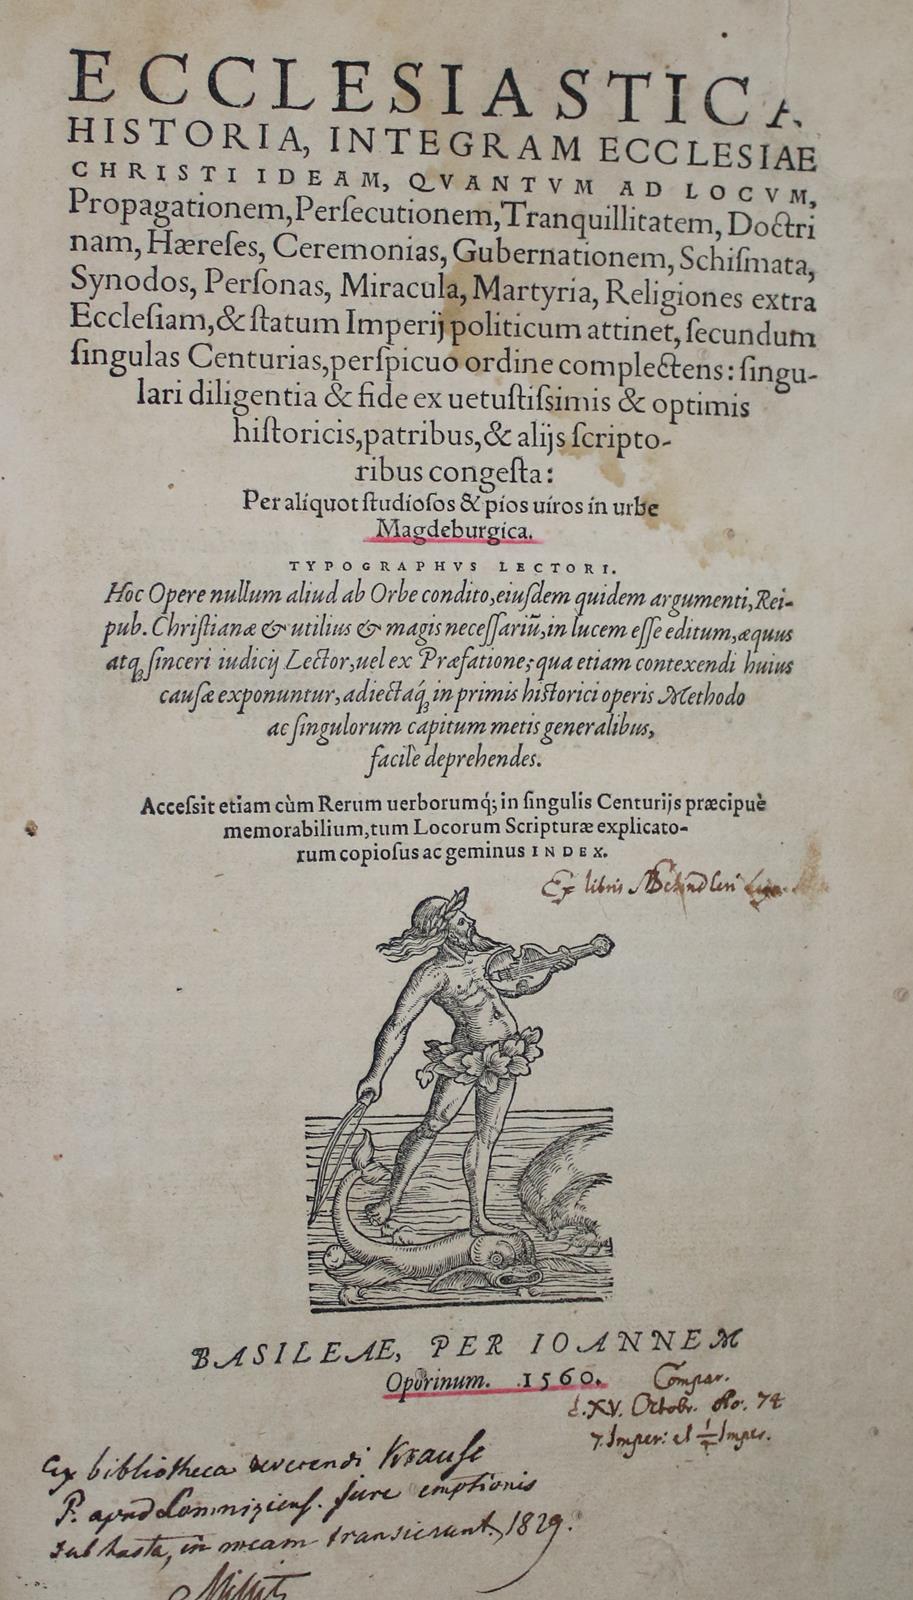 ECCLESIASTICA
HISTORIA, INTEGRAM ECCLESIAE
CHRISTI IDEAM, QVANTVM AD LOCVM,
Propagationem, Perſecutionem, Tranquillitatem, Doctri
nam, Hæreſes, Ceremonias, Gubernationem, Schiſmata,
Synodos, Perſonas, Miracula, Martyria, Religiones extra
Eccleſiam, & ſtatum Imperij politicum attinet, ſecundum
ſingulas Centurias, perſpicuo ordine complectens: ſingu-
lari diligentia & fide ex uetuſtiſsimis & optimis
hiſtoricis, patribus, & alijs ſcripto-
ribus congeſta:
Per aliquot ſtudioſos & pios uiros in urbe
Magdeburgica.
TYPOGRAPHVS LECTORI.
Hoc Opere nullum aliud ab Orbe condito, eiuſdem quidem argumenti, Rei-
pub. Chriſtianæ & utilius & magis neceſſariũ, in lucem eſſe editum, æquus
atq; ſinceri iudicij Lector, uel ex Præfatione; qua etiam contexendi huius
cauſæ exponuntur, adiectaq́; in primis hiſtorici operis Methodo
ac ſingulorum capitum metis generalibus,
facilè deprehendes.
Acceſsit etiam cùm Rerum uerborumq́; in ſingulis Centurijs præcipuè
memorabilium, tum Locorum Scripturæ explicato-
rum copioſus ac geminus INDEX.
Ex libris
BASILEAE, PER IOANNEM
Oporinum. 1560.
Compar.
d. XV. Octobr. Ao. 74
7. Imper: et Imper.
Ex bibliotheca reverendi Krause
P. apud Lomniziens. jure emptionis
sub hasta, in meam transierunt, 1829.